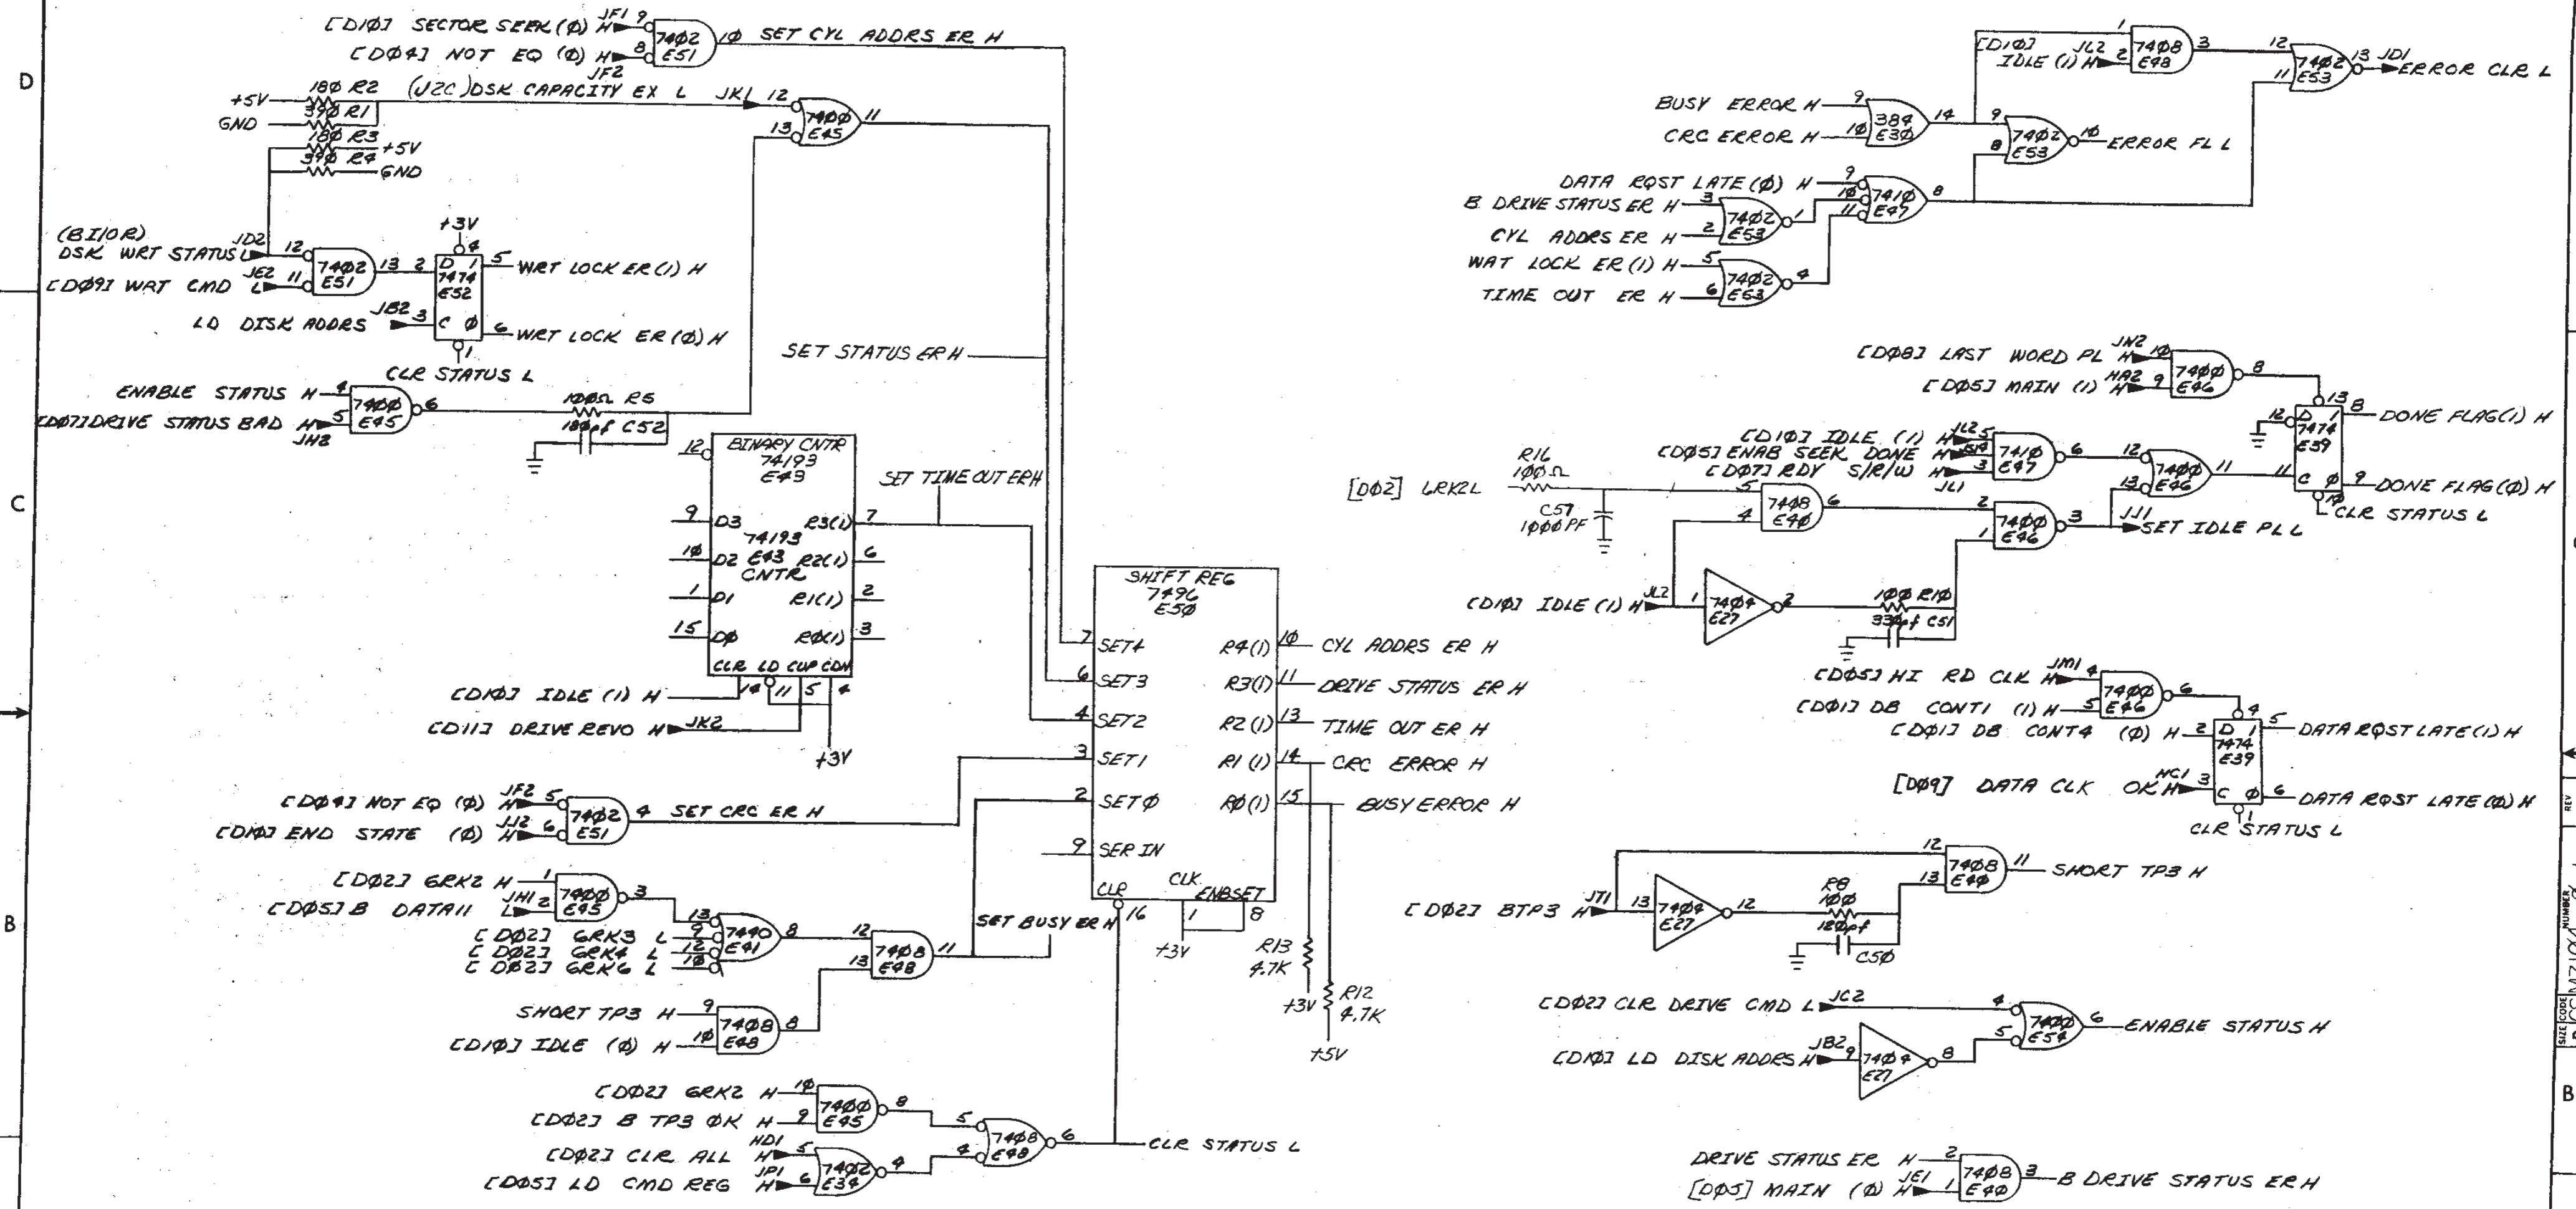 D
[D1Ø] SECTOR SEEK (Ø) H JF1 9
[DØ4] NOT EQ (Ø) H 8
JF2
74Ø2
E51
1Ø SET CYL ADDRS ER H
+5V 18Ø R2
GND 39Ø R1
18Ø R3 +5V
39Ø R4 GND
(J2C) DSK CAPACITY EX L JK1 12
13
74ØØ
E45
11
(BI1OR)
DSK WRT STATUS L JD2 12
[DØ9] WRT CMD L JE2 11
74Ø2
E51
13 2
+3V
4
D 1
7474
E52
C Ø
5 WRT LOCK ER (1) H
6 WRT LOCK ER (Ø) H
LD DISK ADDRS JB2 3
1
CLR STATUS L
SET STATUS ER H
ENABLE STATUS H 4
[DØ7] DRIVE STATUS BAD H 5
JH2
74ØØ
E45
6
1ØØΩ R5
18Øpf C52
12
BINARY CNTR
74193
E43
9 D3
1Ø D2
1 D1
15 DØ
74193
E43
CNTR
R3(1) 7
R2(1) 6
R1(1) 2
RØ(1) 3
SET TIME OUT ER H
CLR LD CUP CDN
14 11 5 4
[D1Ø] IDLE (1) H
[D11] DRIVE REVO H JK2
+3V
[DØ4] NOT EQ (Ø) H JF2 5
[D1Ø] END STATE (Ø) H JJ2 6
74Ø2
E51
4 SET CRC ER H
[DØ2] 6RK2 H 1
[DØ5] B DATA11 L JH1 2
74ØØ
E45
3
[DØ2] 6RK3 L
[DØ2] 6RK4 L
[DØ2] 6RK6 L
13
9
12
1Ø
744Ø
E41
8
12
13
74Ø8
E48
11
SET BUSY ER H
SHORT TP3 H 9
[D1Ø] IDLE (Ø) H 1Ø
74Ø8
E48
8
[DØ2] 6RK2 H 1Ø
[DØ2] B TP3 ØK H 9
74ØØ
E45
8
[DØ2] CLR ALL H HD1 5
[DØ5] LD CMD REG H JP1 6
74Ø2
E34
4
5
4
74Ø8
E48
6
CLR STATUS L
SHIFT REG
7496
E5Ø
7 SET4
6 SET3
4 SET2
3 SET1
2 SETØ
9 SER IN
R4(1) 1Ø CYL ADDRS ER H
R3(1) 11 DRIVE STATUS ER H
R2(1) 13 TIME OUT ER H
R1(1) 14 CRC ERROR H
RØ(1) 15 BUSY ERROR H
CLR
CLK
ENBSET
16
1
8
+3V
R13
4.7K
+3V
R12
4.7K
+5V
BUSY ERROR H 9
CRC ERROR H 1Ø
384
E3Ø
14
[D1Ø]
IDLE (1) H JL2 2
1
74Ø8
E48
3
12
11
74Ø2
E53
13 JD1
ERROR CLR L
9
8
74Ø2
E53
1Ø
ERROR FL L
DATA RQST LATE (Ø) H 9
B DRIVE STATUS ER H 3
CYL ADDRS ER H 2
74Ø2
E53
1
1Ø
11
741Ø
E47
8
WAT LOCK ER (1) H 5
TIME OUT ER H 6
74Ø2
E53
4
[DØ8] LAST WORD PL H JN2 1Ø
[DØ5] MAIN (1) H HA2 9
74ØØ
E46
8
13
12
D 1
7474
E39
C Ø
8 DONE FLAG (1) H
9 DONE FLAG (Ø) H
1Ø
CLR STATUS L
[D1Ø] IDLE (1) H JL2 5
[DØ5] ENAB SEEK DONE H 4
[DØ7] RDY S/R/W H 3
JL1
741Ø
E47
6
12
13
74ØØ
E46
11
11
[DØ2] 6RK2L
R16
1ØØΩ
C57
1ØØØPF
5
4
74Ø8
E4Ø
6
2
1
74ØØ
E46
3
JJ1
SET IDLE PL L
[D1Ø] IDLE (1) H JL2 1
74Ø4
E27
2
1ØØ R1Ø
33Øpf C51
[DØ5] HI RD CLK H JM1 4
[DØ1] DB CONT1 (1) H 5
74ØØ
E46
6
4
[DØ1] DB CONT4 (Ø) H 2
[DØ9] DATA CLK OK H HC1 3
D 1
7474
E39
C Ø
5 DATA RQST LATE (1) H
6 DATA RQST LATE (Ø) H
1
CLR STATUS L
[DØ2] BTP3 H JT1 13
74Ø4
E27
12
R8
1ØØ
12Øpf
C5Ø
12
13
74Ø8
E4Ø
11
SHORT TP3 H
[DØ2] CLR DRIVE CMD L JC2 4
[D1Ø] LD DISK ADDRS H JB2 9
74Ø4
E27
8
5
74ØØ
E54
6
ENABLE STATUS H
DRIVE STATUS ER H 2
[DØ5] MAIN (Ø) H JE1 1
74Ø8
E4Ø
3
B DRIVE STATUS ER H
C
B
REV
NUMBER
SIZE CODE
B